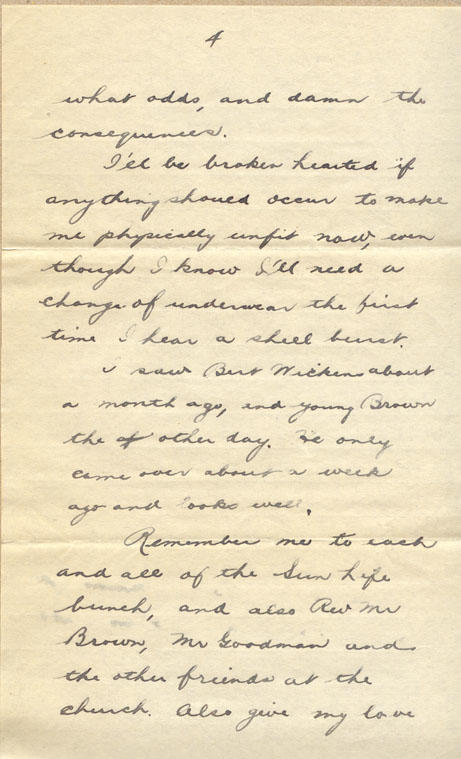 4
what odds, and damn the
consequences.
I'll be broken hearted if
anything should occur to make
me physically unfit now, even
though I know I'll need a
change of underwear the first
time I hear a shell burst.
I saw Bert Wickens about
a month ago, and young Brown
the other day. He only
came over about a week
ago and looks well.
Remember me to each
and all of the Sun Life
bunch, and also Rev Mr
Brown, Mr Goodman and
the other friends at the
church. Also give my love